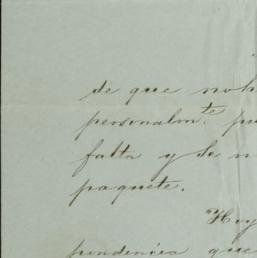 de que no h
personalm.te pu
falta y se n
paquete.
Hoy
pondencia que